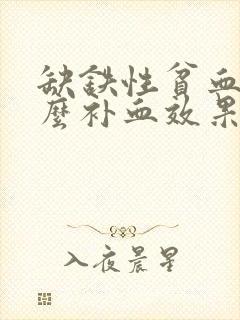 缺铁性贫血
麼补血效果
入夜晨星